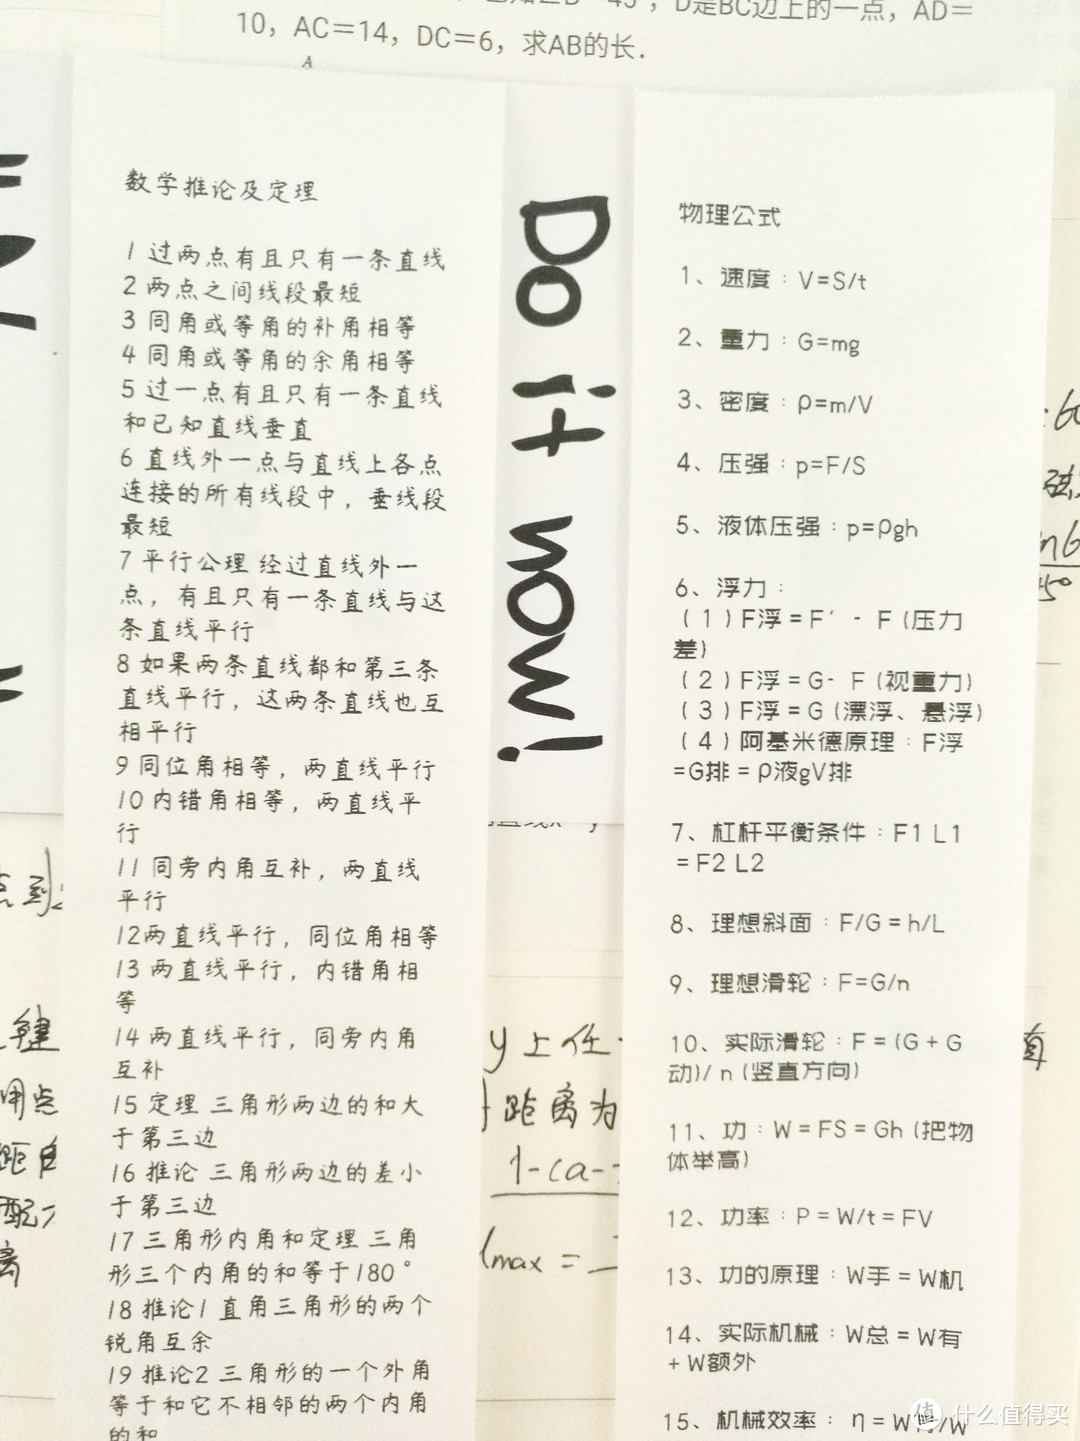 D是BC边上的一点，AD＝
10，AC＝14，DC＝6，求AB的长．
A
数学推论及定理
1 过两点有且只有一条直线
2 两点之间线段最短
3 同角或等角的补角相等
4 同角或等角的余角相等
5 过一点有且只有一条直线
和已知直线垂直
6 直线外一点与直线上各点
连接的所有线段中，垂线段
最短
7 平行公理 经过直线外一
点，有且只有一条直线与这
条直线平行
8 如果两条直线都和第三条
直线平行，这两条直线也互
相平行
9 同位角相等，两直线平行
10 内错角相等，两直线平
行
11 同旁内角互补，两直线
平行
12两直线平行，同位角相等
13 两直线平行，内错角相
等
14 两直线平行，同旁内角
互补
15 定理 三角形两边的和大
于第三边
16 推论 三角形两边的差小
于第三边
17 三角形内角和定理 三角
形三个内角的和等于180°
18 推论1 直角三角形的两个
锐角互余
19 推论2 三角形的一个外角
等于和它不相邻的两个内角
的和
Do it now!
物理公式
1、速度：V=S/t
2、重力：G=mg
3、密度：ρ=m/V
4、压强：p=F/S
5、液体压强：p=ρgh
6、浮力：
(1)F浮=F′- F (压力
差)
(2)F浮=G- F (视重力)
(3)F浮=G (漂浮、悬浮)
(4)阿基米德原理：F浮
=G排=ρ液gV排
7、杠杆平衡条件：F1 L1
= F2 L2
8、理想斜面：F/G=h/L
9、理想滑轮：F=G/n
10、实际滑轮：F=(G+G
动)/ n (竖直方向)
11、功：W=FS=Gh (把物
体举高)
12、功率：P=W/t=FV
13、功的原理：W手=W机
14、实际机械：W总=W有
+W额外
15、机械效率：η=W有/W
点到
键
用点
距
配
离
y上任
距离为
1-(a-
max =
值 什么值得买